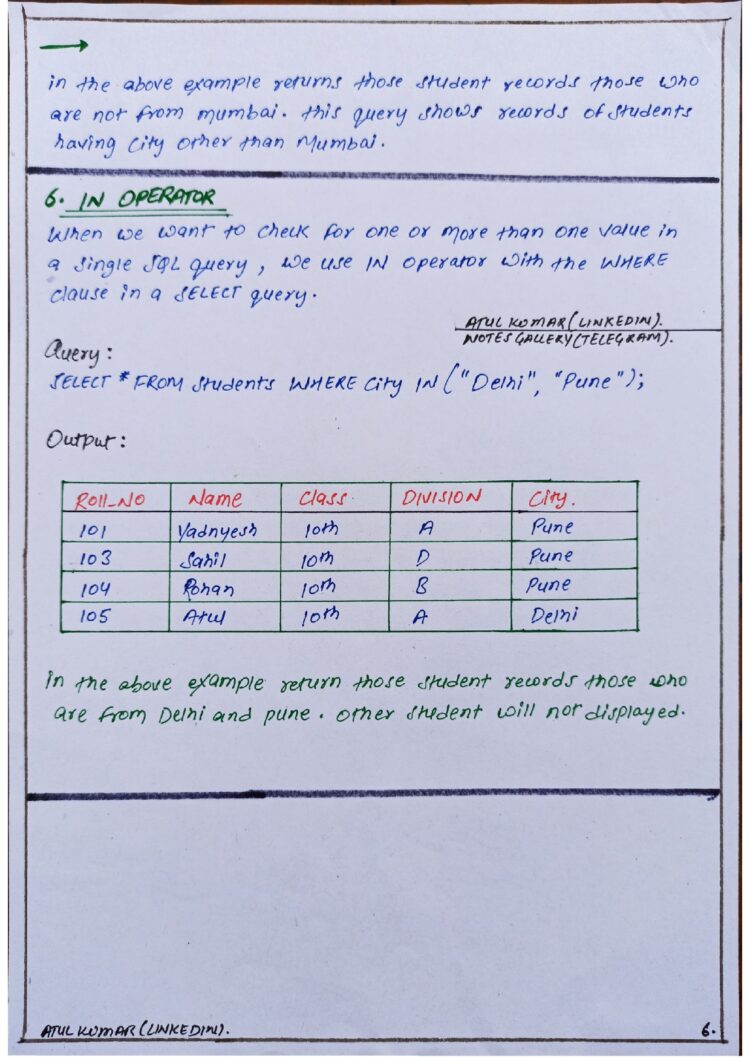 in the above example returns those student records those who
are not from mumbai. this query shows records of students
having city other than Mumbai.
6. IN OPERATOR
When we want to check for one or more than one value in
a single SQL query, we use IN operator with the WHERE
clause in a SELECT query.
ATUL KUMAR (LINKEDIN).
NOTES GALLERY (TELEGRAM).
Query:
SELECT * FROM students WHERE City IN ("Delhi", "Pune");
Output:
Roll_NO Name Class. DIVISION City.
101 Yadnyesh 10th A Pune
103 Sahil 10th D Pune
104 Rohan 10th B Pune
105 Atul 10th A Delhi
In the above example return those student records those who
are from Delhi and pune. other student will not displayed.
ATUL KUMAR (LINKEDIN). 6.